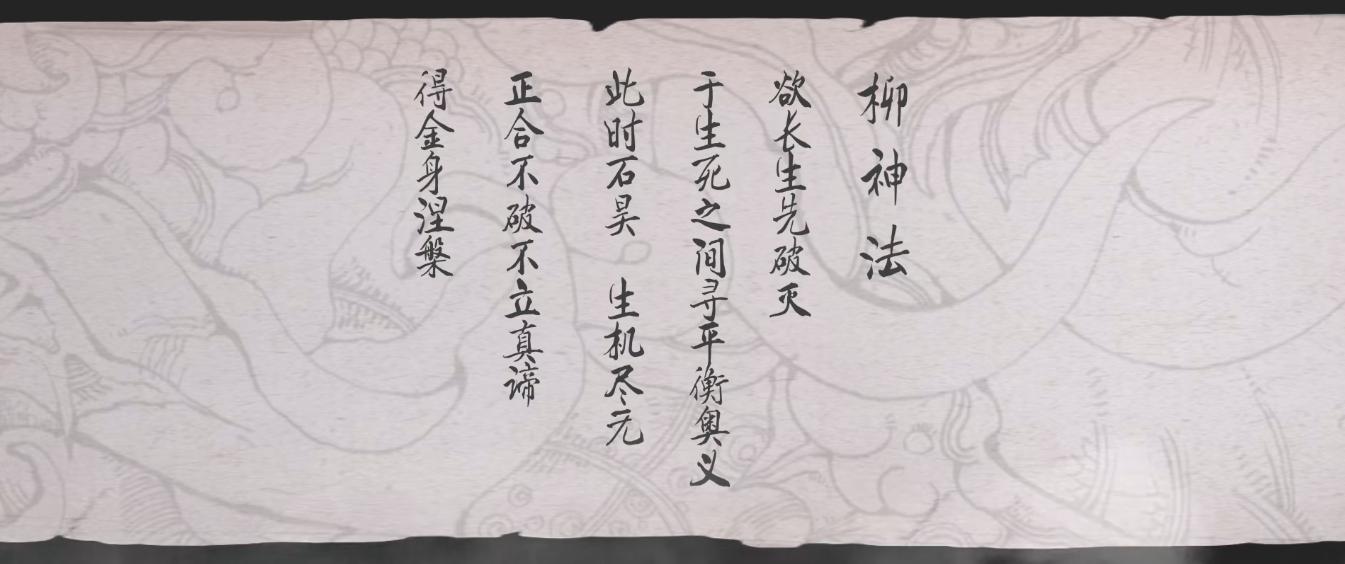 柳神法
欲长生先破灭
于生死之间寻平衡奥义
此时石昊 生机尽无
正合不破不立真谛
得金身涅槃